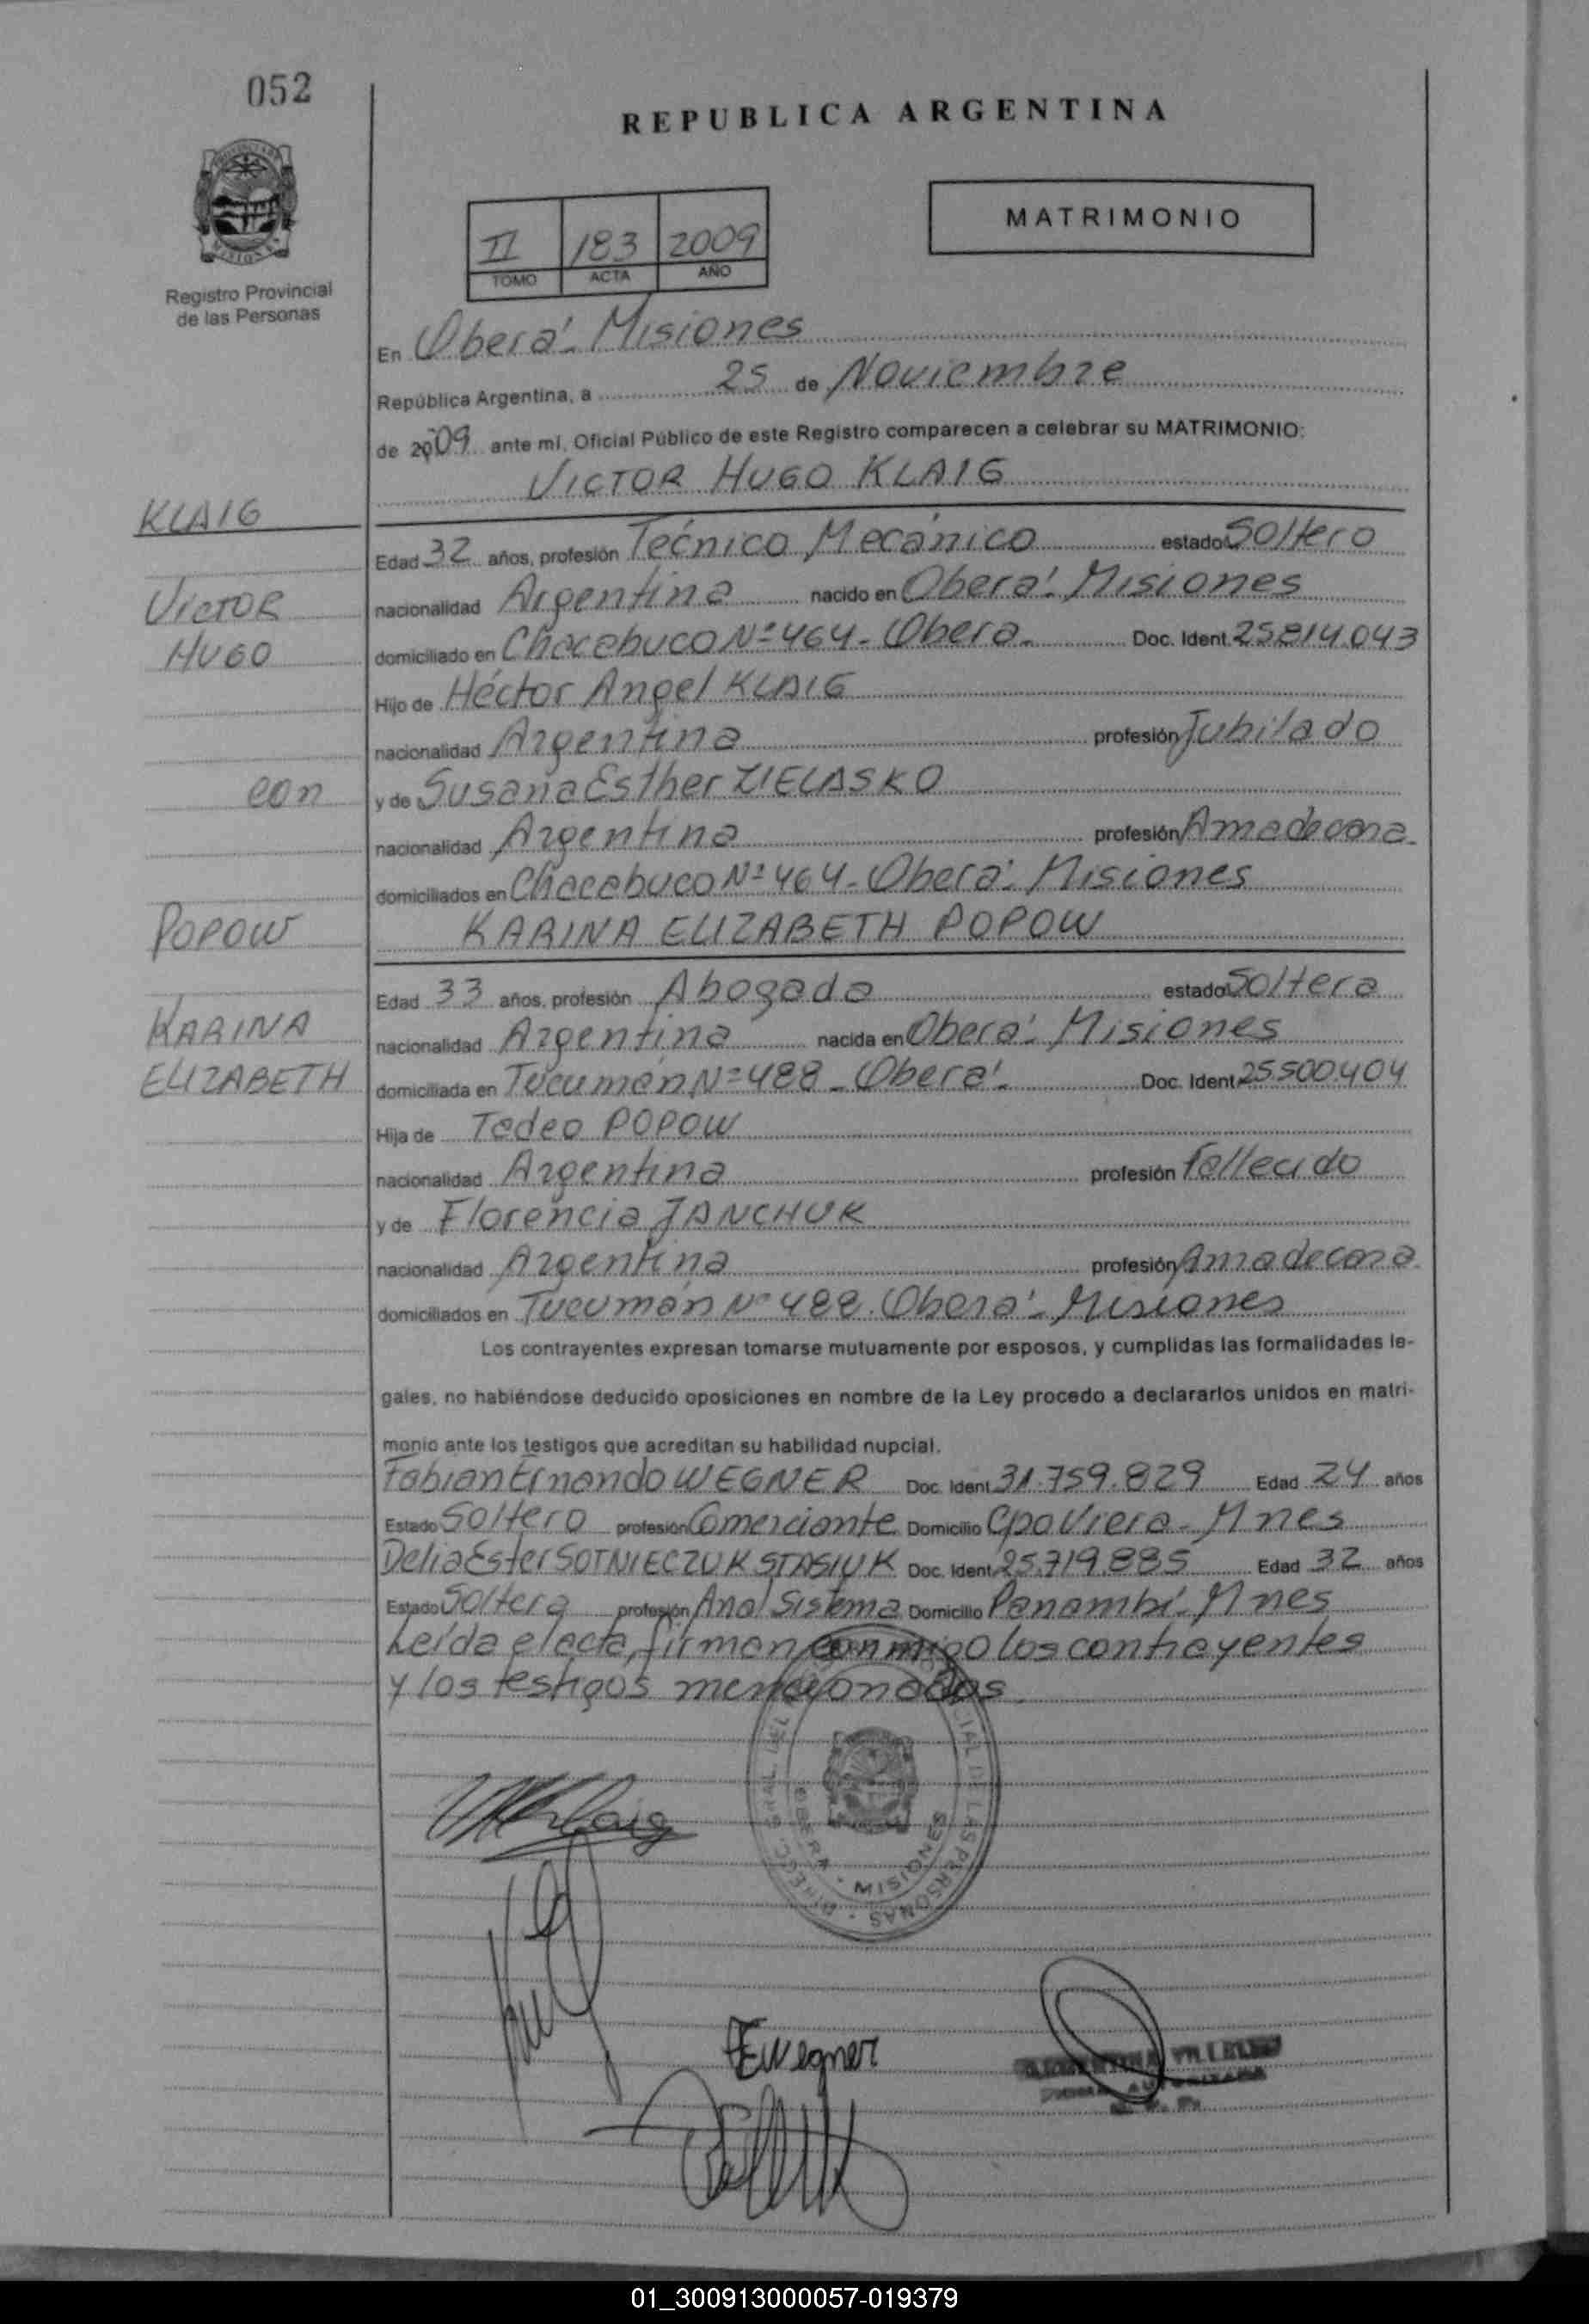 052
REPUBLICA ARGENTINA
MATRIMONIO
II 183 2009
TOMO ACTA AÑO
Registro Provincial
de las Personas
En Oberá - Misiones
República Argentina, a 25 de Noviembre
de 2009 ante mí, Oficial Público de este Registro comparecen a celebrar su MATRIMONIO:
VICTOR HUGO KLAIG
KLAIG
Edad 32 años, profesión Técnico Mecánico estado Soltero
VICTOR
nacionalidad Argentina nacido en Oberá - Misiones
HUGO
domiciliado en Chacabuco Nº 464 - Oberá - Doc. Ident. 25.814.043
Hijo de Héctor Angel KLAIG
nacionalidad Argentina profesión Jubilado
con
y de Susana Esther ZIELASKO
nacionalidad Argentina profesión Amadecasa
domiciliados en Chacabuco Nº 464 - Oberá - Misiones
POPOW
KARINA ELIZABETH POPOW
Edad 33 años, profesión Abogada estado Soltera
KARINA
nacionalidad Argentina nacida en Oberá - Misiones
ELIZABETH
domiciliada en Tucumán Nº 488 - Oberá - Doc. Ident. 25.500.404
Hija de Tadeo POPOW
nacionalidad Argentina profesión Fallecido
y de Florencia JANCHUK
nacionalidad Argentina profesión Amadecasa
domiciliados en Tucumán Nº 488 - Oberá - Misiones
Los contrayentes expresan tomarse mutuamente por esposos, y cumplidas las formalidades le-
gales, no habiéndose deducido oposiciones en nombre de la Ley procedo a declararlos unidos en matri-
monio ante los testigos que acreditan su habilidad nupcial.
Fabian Ernando WEGNER Doc. Ident. 31.759.829 Edad 24 años
Estado Soltero profesión Comerciante Domicilio Cpo Viera - Mnes
Delia Ester SOTNIECZUK STASIUK Doc. Ident. 25.719.885 Edad 32 años
Estado Soltera profesión Anal Sistema Domicilio Panambí - Mnes
Leída el acta, firman conmigo los contrayentes
y los testigos mencionados.
OBERA - MISIONES
Klaig
FEWegner
01_300913000057-019379